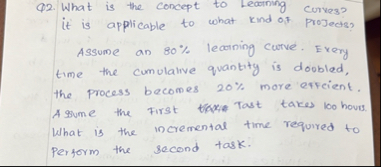 Q2. What is the concept to Learning curves?
it is applicable to what kind of projects?
Assume an 80% learning curve. Every
time the cumulative quantity is doubled,
the process becomes 20% more efficient.
Assume the First Tast takes 100 hours.
What is the incremental time required to
perform the second task.